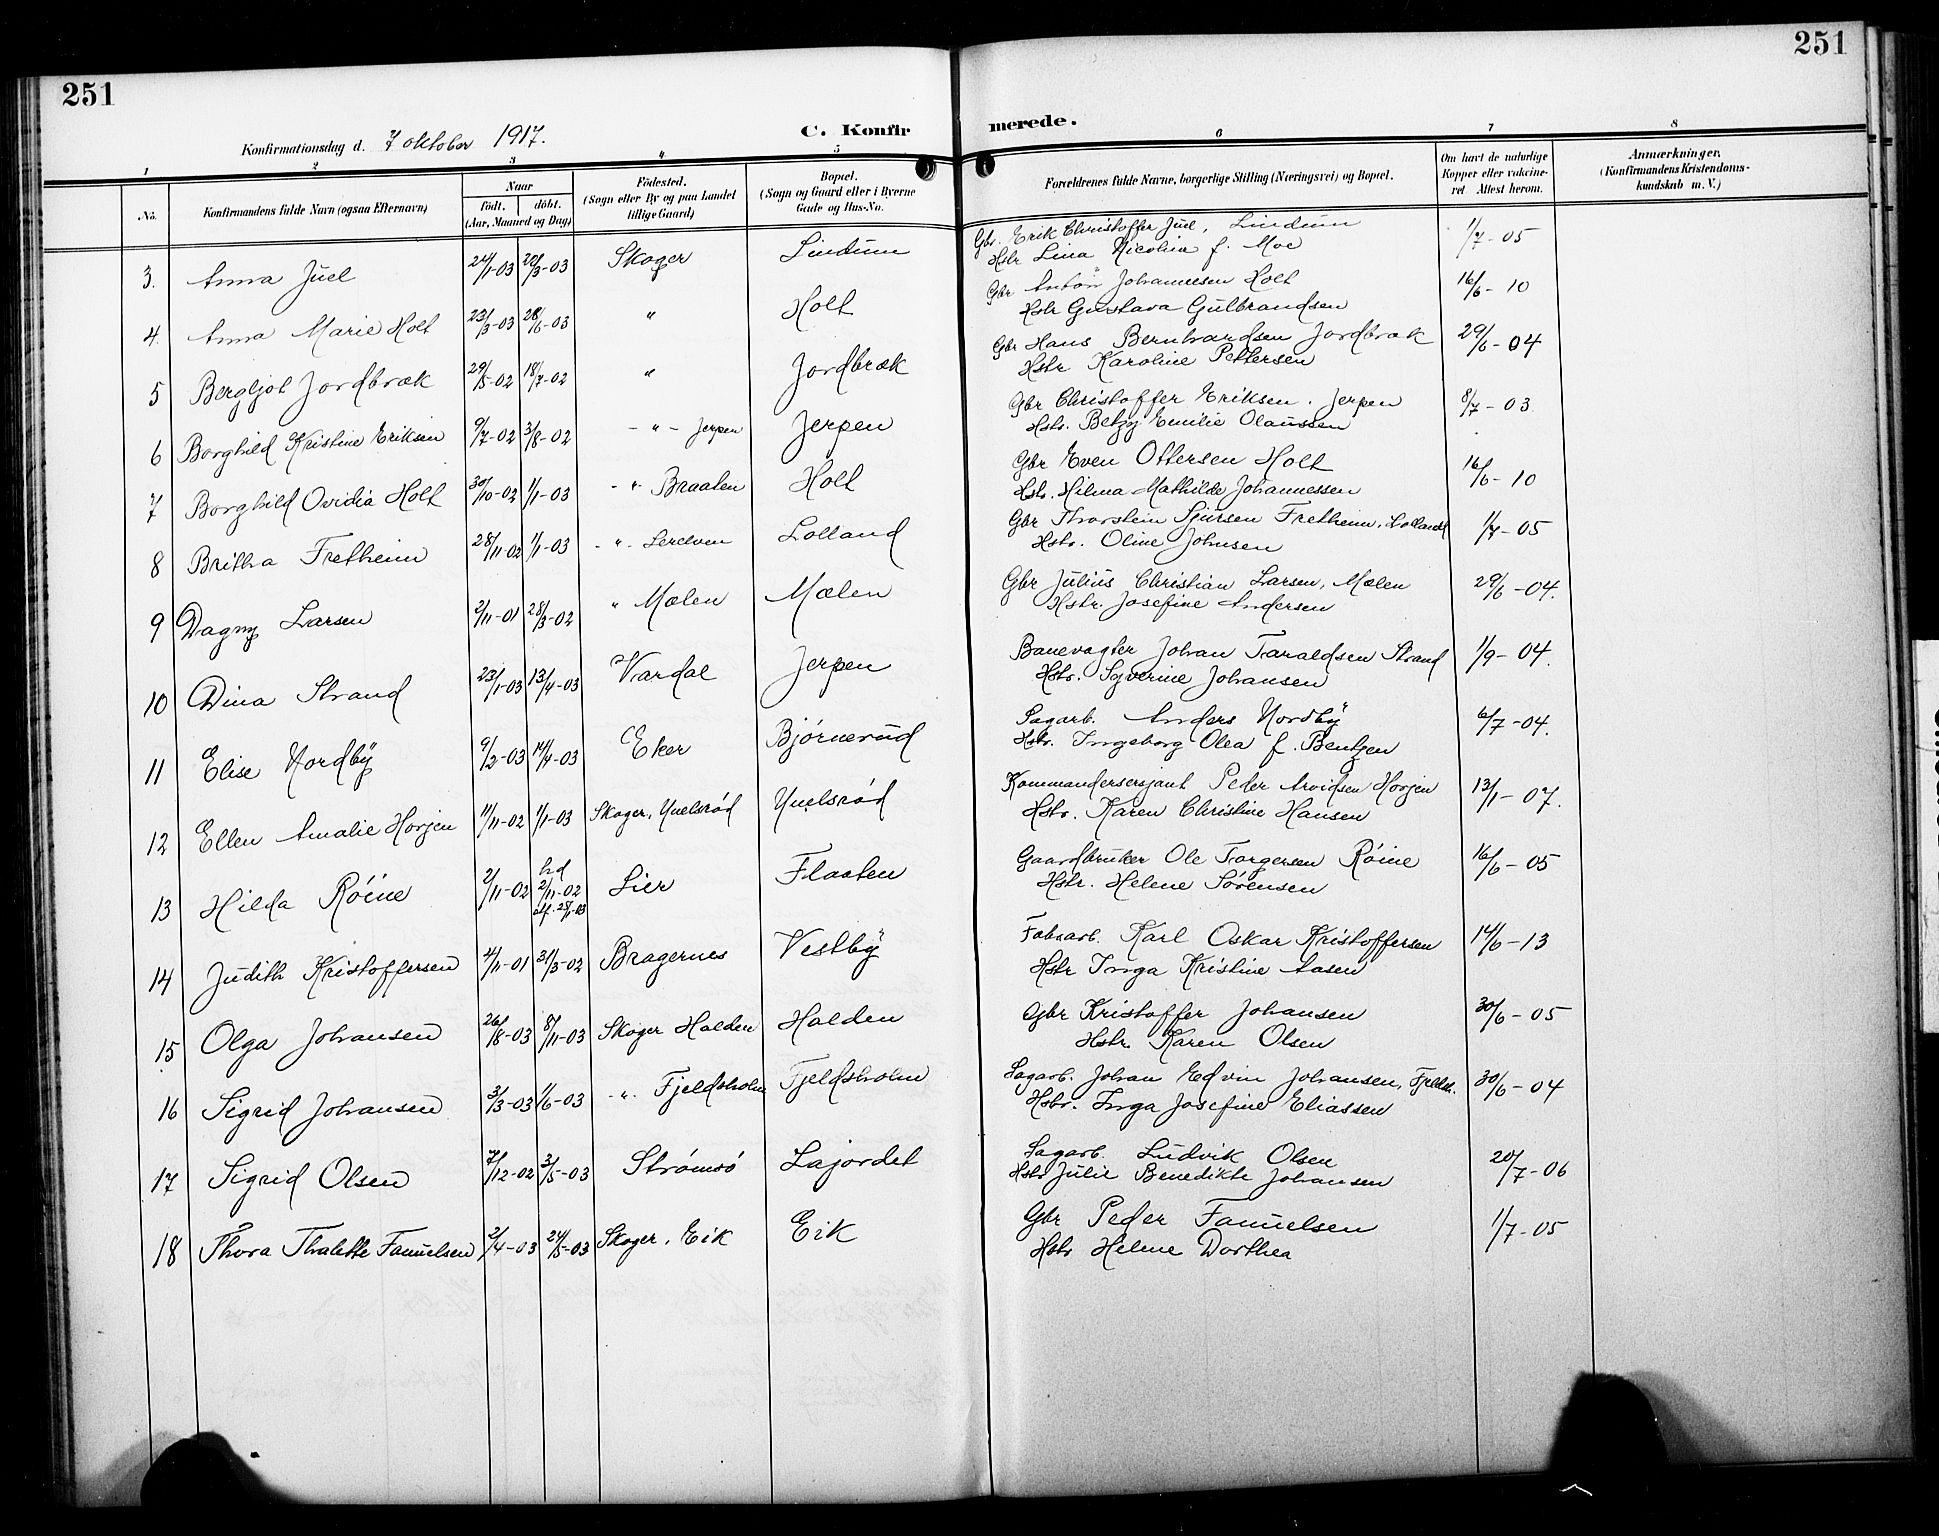 251
251
Konfirmationsdag d. 7 oktober 1917.
C. Konfir
merede.
1 2 3 4 5 6 7 8
No.
Konfirmandens fulde Navn (ogsaa Efternavn)
Naar
födt. döbt.
(Aar, Maaned og Dag)
Födested.
(Sogn eller By og paa Landet
tillige Gaard)
Bopæl.
(Sogn og Gaard eller i Byerne
Gade og Hus-No.
Forældrenes fulde Navne, borgerlige Stilling (Næringsvei) og Bopæl.
Om havt de naturlige
Kopper eller vakcine-
ret. Attest herom.
Anmærkninger.
(Konfirmandens Kristendoms-
kundskab m. V.)
3. Anna Juel 24/1-03 22/3-03 Skoger Lindum Gbr. Erik Christoffer Juel, Lindum 1/7-05
Hstr Lina Nicolina f. Moe
4. Anna Marie Holt 23/3-03 28/6-03 " Holt Gbr Anton Johannesen Holt 16/6-10
Hstr Gustava Gulbrandsen
5 Bergljot Jordbræk 29/5-02 18/7-02 " Jordbræk Gbr Hans Bernhardsen Jordbræk 29/6-04
Hstr Karoline Pettersen
6 Borghild Kristine Eriksen 9/7-02 3/8-02 - " - Jerpen Jerpen Gbr Christoffer Eriksen. Jerpen 8/7-03
Hstr. Betzy Emilie Olaussen
7 Borghild Ovidia Holt 30/10-02 1/1-03 - " - Braaten Holt Gbr Even Ottersen Holt 16/6-10
Hstr. Hilma Mathilde Johannessen
8 Britha Fretheim 28/11-02 1/1-03 - " - Lerelven Lolland Gbr Thorstein Sjursen Fretheim, Lolland 1/7-05
Hstr. Oline Johnsen
9 Dagny Larsen 2/11-01 28/3-02 " Mælen Mælen Gbr Julius Christian Larsen, Mælen 29/6-04.
Hstr. Josefine Andersen
10 Dina Strand 23/1-03 13/4-03 Vardal Jerpen Banevogter Johan Taraldsen Strand 1/9-04.
Hstr. Syverine Johansen
11 Elise Nordby 9/2-03 14/4-03 Eker Bjørnerud Sagarb. Anders Nordby 6/7-04.
Hstr. Ingeborg Olea f. Bentzen
12 Ellen Amalie Horjen 11/11-02 1/1-03 Skoger, Ynelsrød Ynelsrød Kommandersersjant Peder Arvidsen Horjen 13/1-07.
Hstr. Karen Christine Hansen
13 Hilda Röine 2/11-02 hd 2/11-02 Lier Flaaten Gaardbruker Ole Torgersen Röine 16/6-05
Hstr. Helene Sørensen
14 Judith Kristoffersen 4/11-01 31/3-02 Bragernes Vestby Fabarb. Karl Oskar Kristoffersen 14/6-13
Hstr Inga Kristine Aasen
15 Olga Johansen 26/8-03 8/11-03 Skoger Halden Halden Gbr Kristoffer Johansen 30/6-05
Hstr. Karen Olsen
16 Sigrid Johansen 3/3-03 1/6-03 - " - Fjeldsholm Fjeldsholm Sagarb. Johan Edvin Johansen, Fjeldsh. 30/6-04
Hstr. Inga Josefine Eliassen
17 Sigrid Olsen 7/12-02 3/5-03 Strømsö Lajordet Sagarb. Ludvik Olsen 20/7-06
Hstr Julie Benedikte Johansen
18 Thora Thalette Fanuelsen 2/4-03 24/5-03 Skoger, Eik Eik Gbr Peder Fanuelsen 1/7-05
Hstr Helene Dorthea